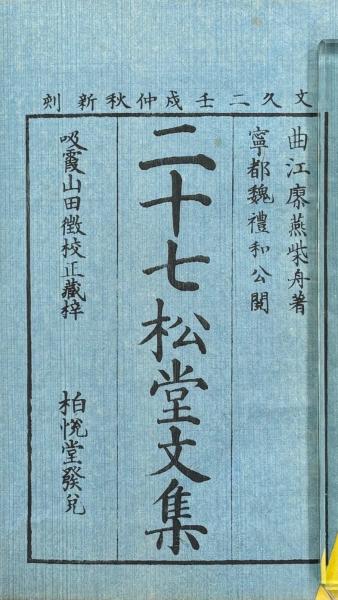 文久二壬戌仲秋新刻
曲江廖燕柴舟著
寧都魏禮和公閱
二十七松堂文集
吸霞山田徴校正藏梓
柏悅堂發兌